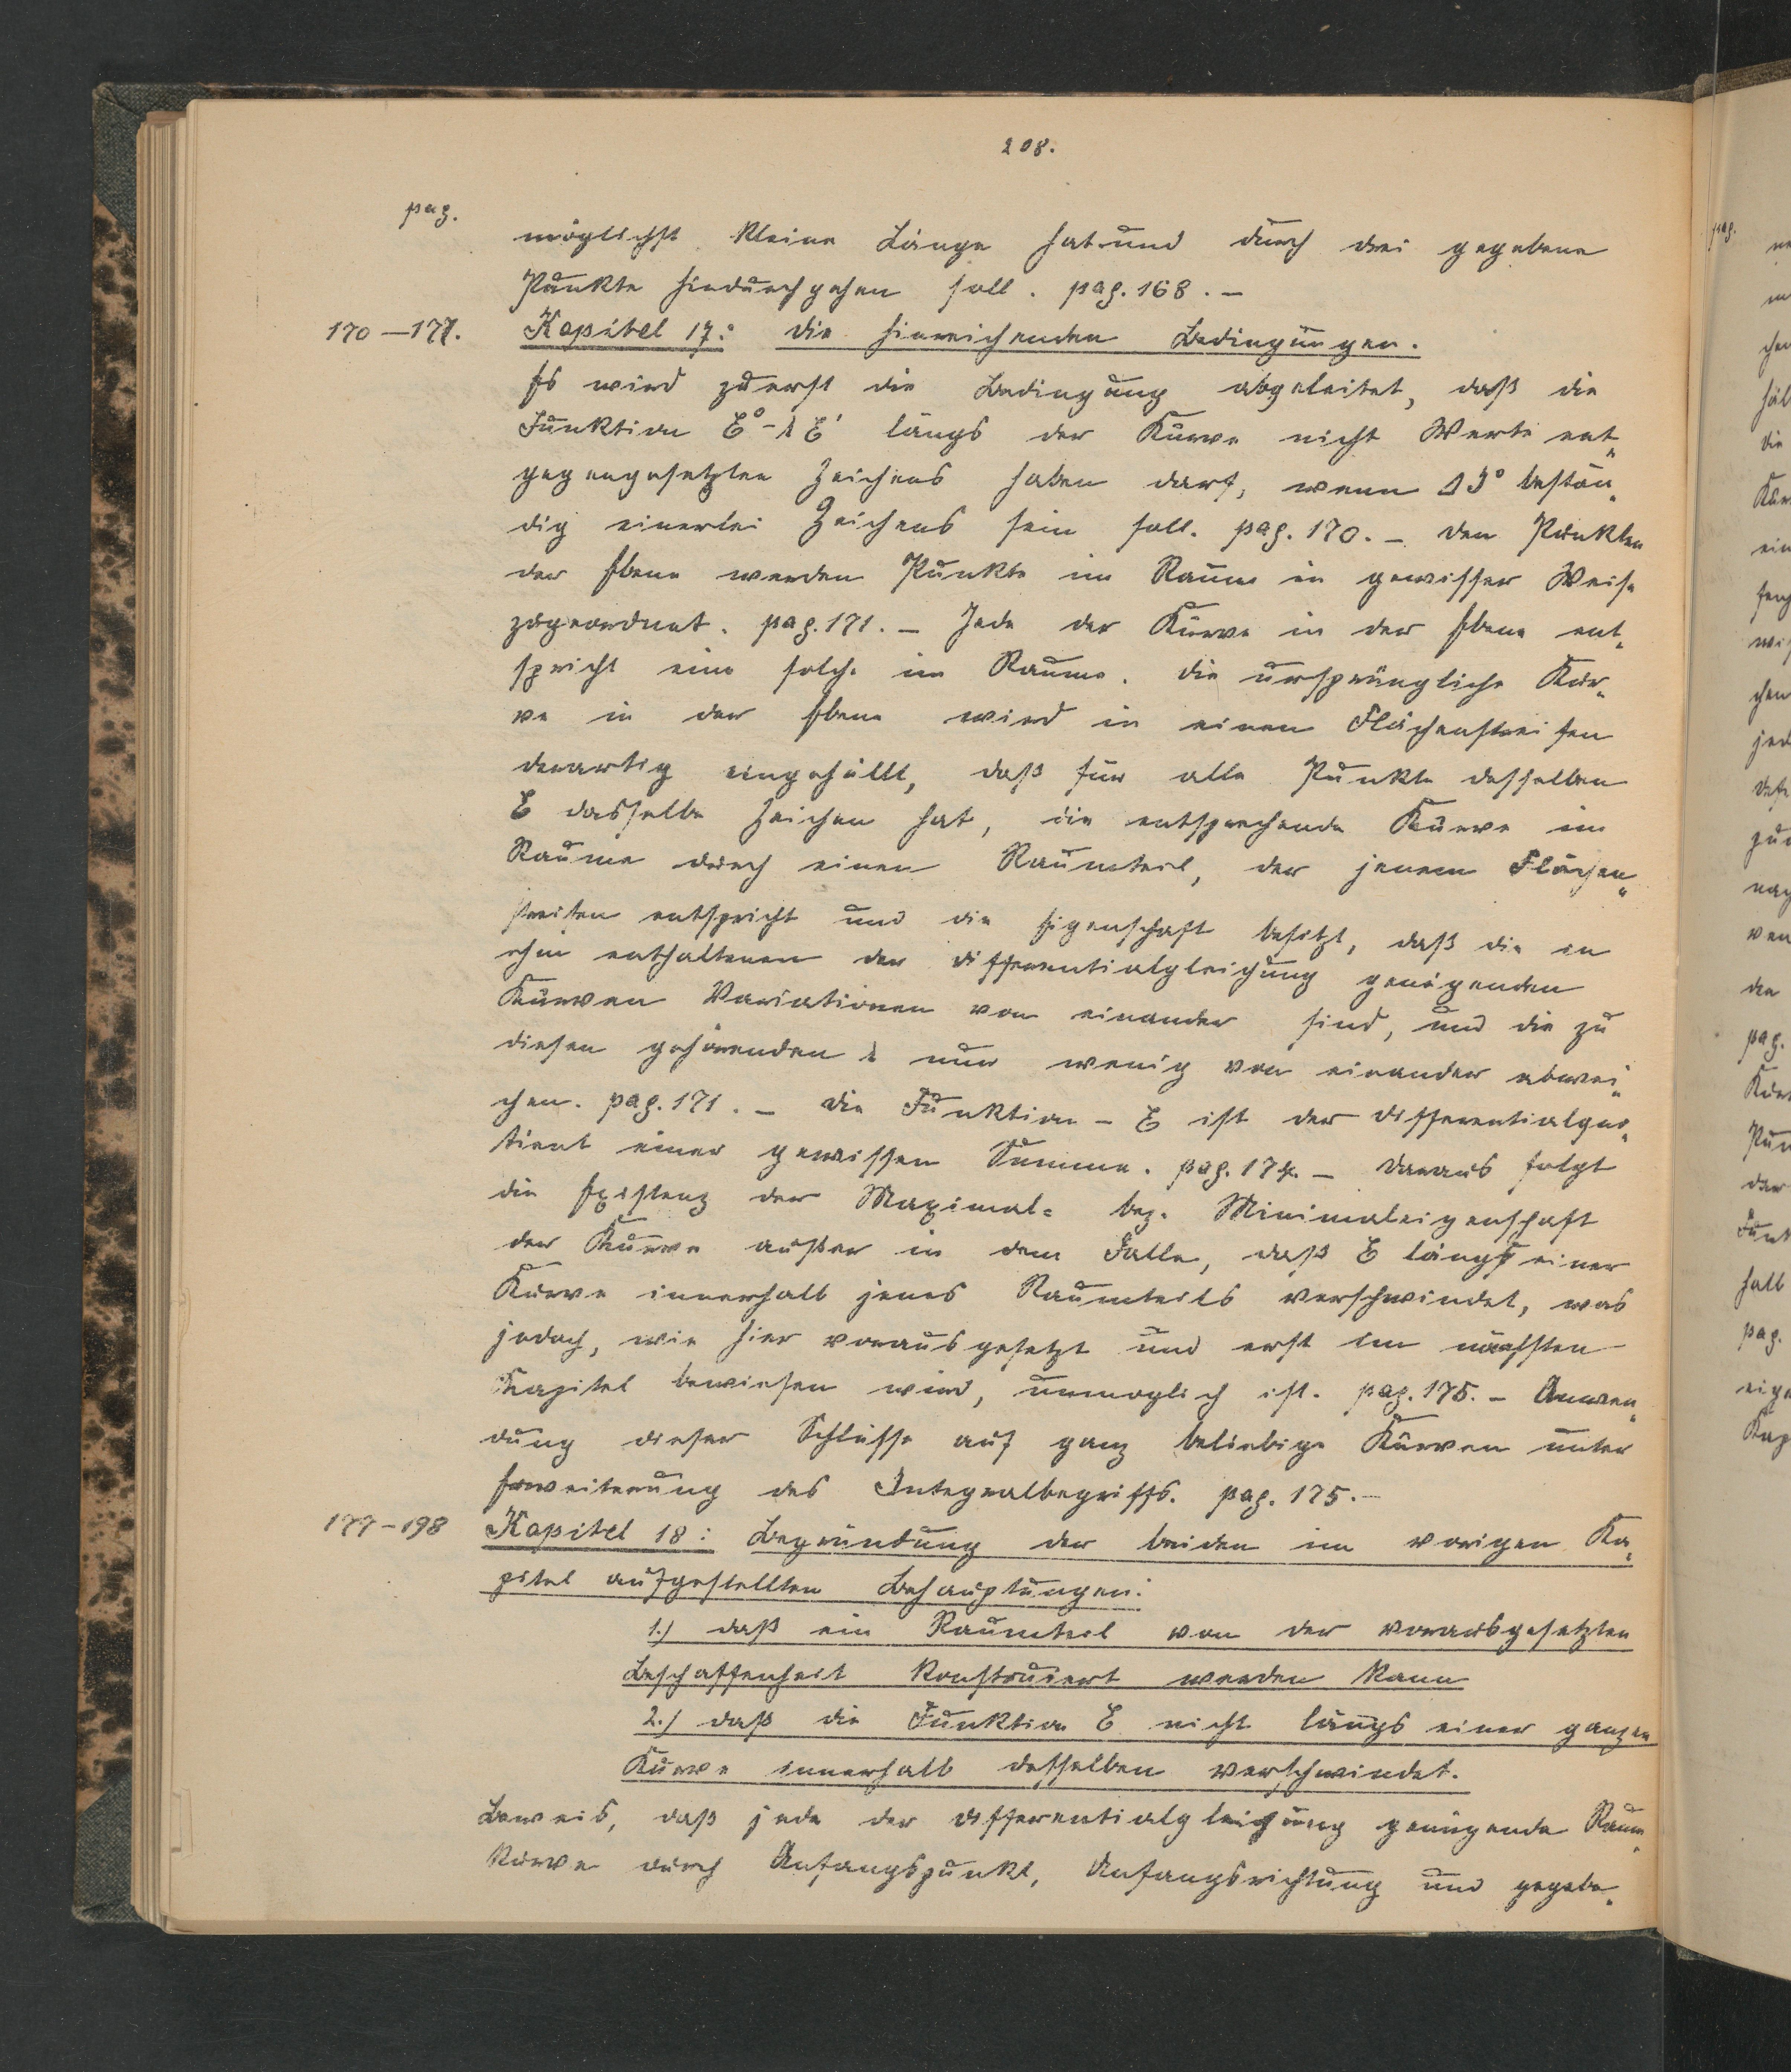 208.
pag.
möglichst kleine Länge hat und durch drei gegebene
Punkte hindurchgehen soll. pag. 168. –
170 – 177. Kapitel 17: Die hinreichenden Bedingungen.
Es wird zuerst die Bedingung abgeleitet, daß die
Funktion E⁰ – λ E' längs der Kurve nicht Werte ent„
gegengesetzten Zeichens haben darf, wenn ΔJ⁰ bestän„
dig einerlei Zeichens sein soll. pag. 170. – Den Punkten
der Ebene werden Punkte im Raume in gewisser Weise
zugeordnet. pag. 171. – Jede der Kurve in der Ebene ent„
spricht eine solche im Raume. Die ursprüngliche Kur„
ve in der Ebene wird in einen Flächenstreifen
derartig eingehüllt, daß für alle Punkte desselben
E dasselbe Zeichen hat, die entsprechende Kurve im
Raume durch einen Raumteil, der jenem Flächen„
streifen entspricht und die Eigenschaft besitzt, daß die in
ihm enthaltenen der Differentialgleichung genügenden
Kurven Variationen von einander sind, und die zu
diesen gehörenden λ nur wenig von einander abwei„
chen. pag. 171. – Die Funktion – E ist der Differentialquo„
tient einer gewissen Summe. pag. 174. – Daraus folgt
die Existenz der Maximal= bez. Minimaleigenschaft
der Kurve außer in dem Falle, daß E längs einer
Kurve innerhalb jenes Raumteils verschwindet, was
jedoch, wie hier vorausgesetzt und erst im nächsten
Kapitel bewiesen wird, unmöglich ist. pag. 175. – Anwen„
dung dieser Schlüsse auf ganz beliebige Kurven unter
Erweiterung des Integralbegriffs. pag. 175. –
177 – 198 Kapitel 18: Begründung der beiden im vorigen Ka„
pitel aufgestellten Behauptungen:
1.) daß ein Raumteil von der vorausgesetzten
Beschaffenheit konstruiert werden kann
2.) daß die Funktion E nicht längs einer ganzen
Kurve innerhalb desselben verschwindet.
Beweis, daß jede der Differentialgleichung genügende Raum„
kurve durch Anfangspunkt, Anfangsrichtung und gegebe„